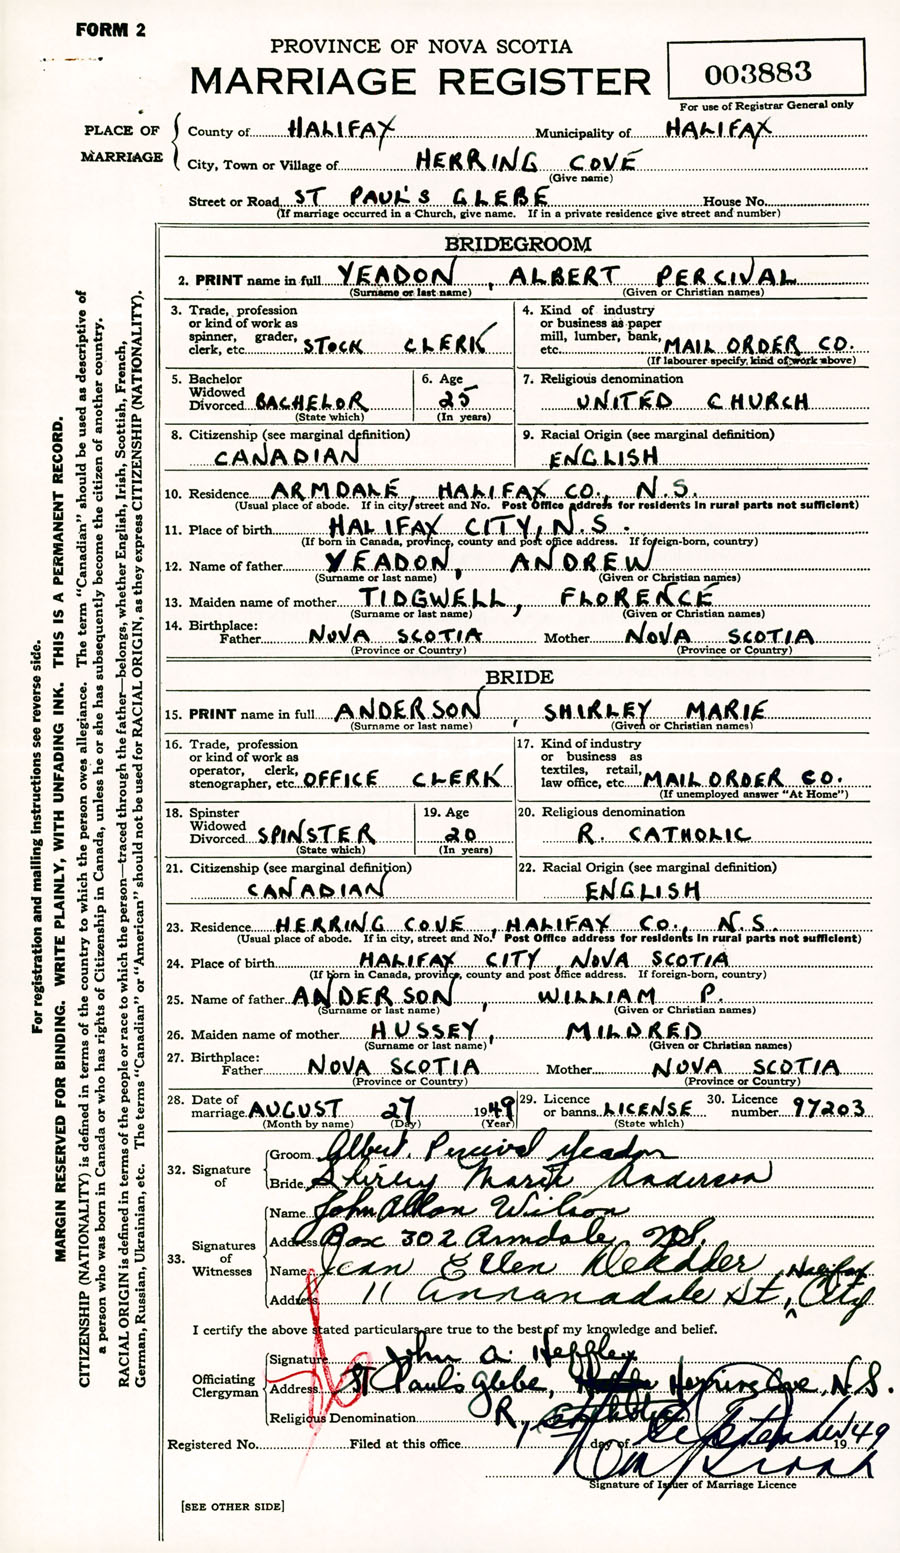 FORM 2
PROVINCE OF NOVA SCOTIA
MARRIAGE REGISTER
003883
For use of Registrar General only
PLACE OF MARRIAGE
County of HALIFAX Municipality of HALIFAX
City, Town or Village of HERRING COVE
(Give name)
Street or Road ST PAUL'S GLEBE House No.
(If marriage occurred in a Church, give name. If in a private residence give street and number)
BRIDEGROOM
2. PRINT name in full YEADON, ALBERT PERCIVAL
(Surname or last name) (Given or Christian names)
3. Trade, profession or kind of work as spinner, grader, clerk, etc. STOCK CLERK
4. Kind of industry or business as paper mill, lumber, bank, etc. MAIL ORDER CO.
(If labourer specify, kind of work above)
5. Bachelor Widowed Divorced BACHELOR
(State which)
6. Age 25
(In years)
7. Religious denomination
UNITED CHURCH
8. Citizenship (see marginal definition)
CANADIAN
9. Racial Origin (see marginal definition)
ENGLISH
10. Residence ARMDALE, HALIFAX CO., N.S.
(Usual place of abode. If in city street and No. Post Office address for residents in rural parts not sufficient)
11. Place of birth HALIFAX CITY, N.S.
(If born in Canada, province, county and post office address. If foreign-born, country)
12. Name of father YEADON, ANDREW
(Surname or last name) (Given or Christian names)
13. Maiden name of mother TIDGWELL, FLORENCE
(Surname or last name) (Given or Christian names)
14. Birthplace:
Father NOVA SCOTIA Mother NOVA SCOTIA
(Province or Country) (Province or Country)
BRIDE
15. PRINT name in full ANDERSON, SHIRLEY MARIE
(Surname or last name) (Given or Christian names)
16. Trade, profession or kind of work as operator, clerk, stenographer, etc. OFFICE CLERK
17. Kind of industry or business as textiles, retail, law office, etc. MAIL ORDER CO.
(If unemployed answer "At Home")
18. Spinster Widowed Divorced SPINSTER
(State which)
19. Age 20
(In years)
20. Religious denomination
R. CATHOLIC
21. Citizenship (see marginal definition)
CANADIAN
22. Racial Origin (see marginal definition)
ENGLISH
23. Residence HERRING COVE, HALIFAX CO., N.S.
(Usual place of abode. If in city, street and No. Post Office address for residents in rural parts not sufficient)
24. Place of birth HALIFAX CITY, NOVA SCOTIA
(If born in Canada, province, county and post office address. If foreign-born, country)
25. Name of father ANDERSON, WILLIAM P.
(Surname or last name) (Given or Christian names)
26. Maiden name of mother HUSSEY, MILDRED
(Surname or last name) (Given or Christian names)
27. Birthplace:
Father NOVA SCOTIA Mother NOVA SCOTIA
(Province or Country) (Province or Country)
28. Date of marriage AUGUST 27 1949
(Month by name) (Day) (Year)
29. Licence or banns LICENSE
(State which)
30. Licence number 97203
32. Signature of
Groom Albert Percival Yeadon
Bride Shirley Marie Anderson
33. Signatures of Witnesses
Name John Allon Wilson
Address Box 302 Armdale, N.S.
Name Jean Ellen
Address 11 Annanadale St, Halifax City
I certify the above stated particulars are true to the best of my knowledge and belief.
Officiating Clergyman
Signature John A. Heffler
Address St Paul's Glebe, Herring Cove, N.S.
Religious Denomination R. Catholic
Registered No. Filed at this office day of September 1949
Signature of Issuer of Marriage Licence
[SEE OTHER SIDE]
For registration and mailing instructions see reverse side.
MARGIN RESERVED FOR BINDING. WRITE PLAINLY, WITH UNFADING INK. THIS IS A PERMANENT RECORD.
CITIZENSHIP (NATIONALITY) is defined in terms of the country to which the person owes allegiance. The term "Canadian" should be used as descriptive of
a person who was born in Canada or who has rights of Citizenship in Canada, unless he or she has subsequently become the citizen of another country.
RACIAL ORIGIN is defined in terms of the people or race to which the person—traced through the father—belongs, whether English, Irish, Scottish, French,
German, Russian, Ukrainian, etc. The terms "Canadian" or "American" should not be used for RACIAL ORIGIN, as they express CITIZENSHIP (NATIONALITY).